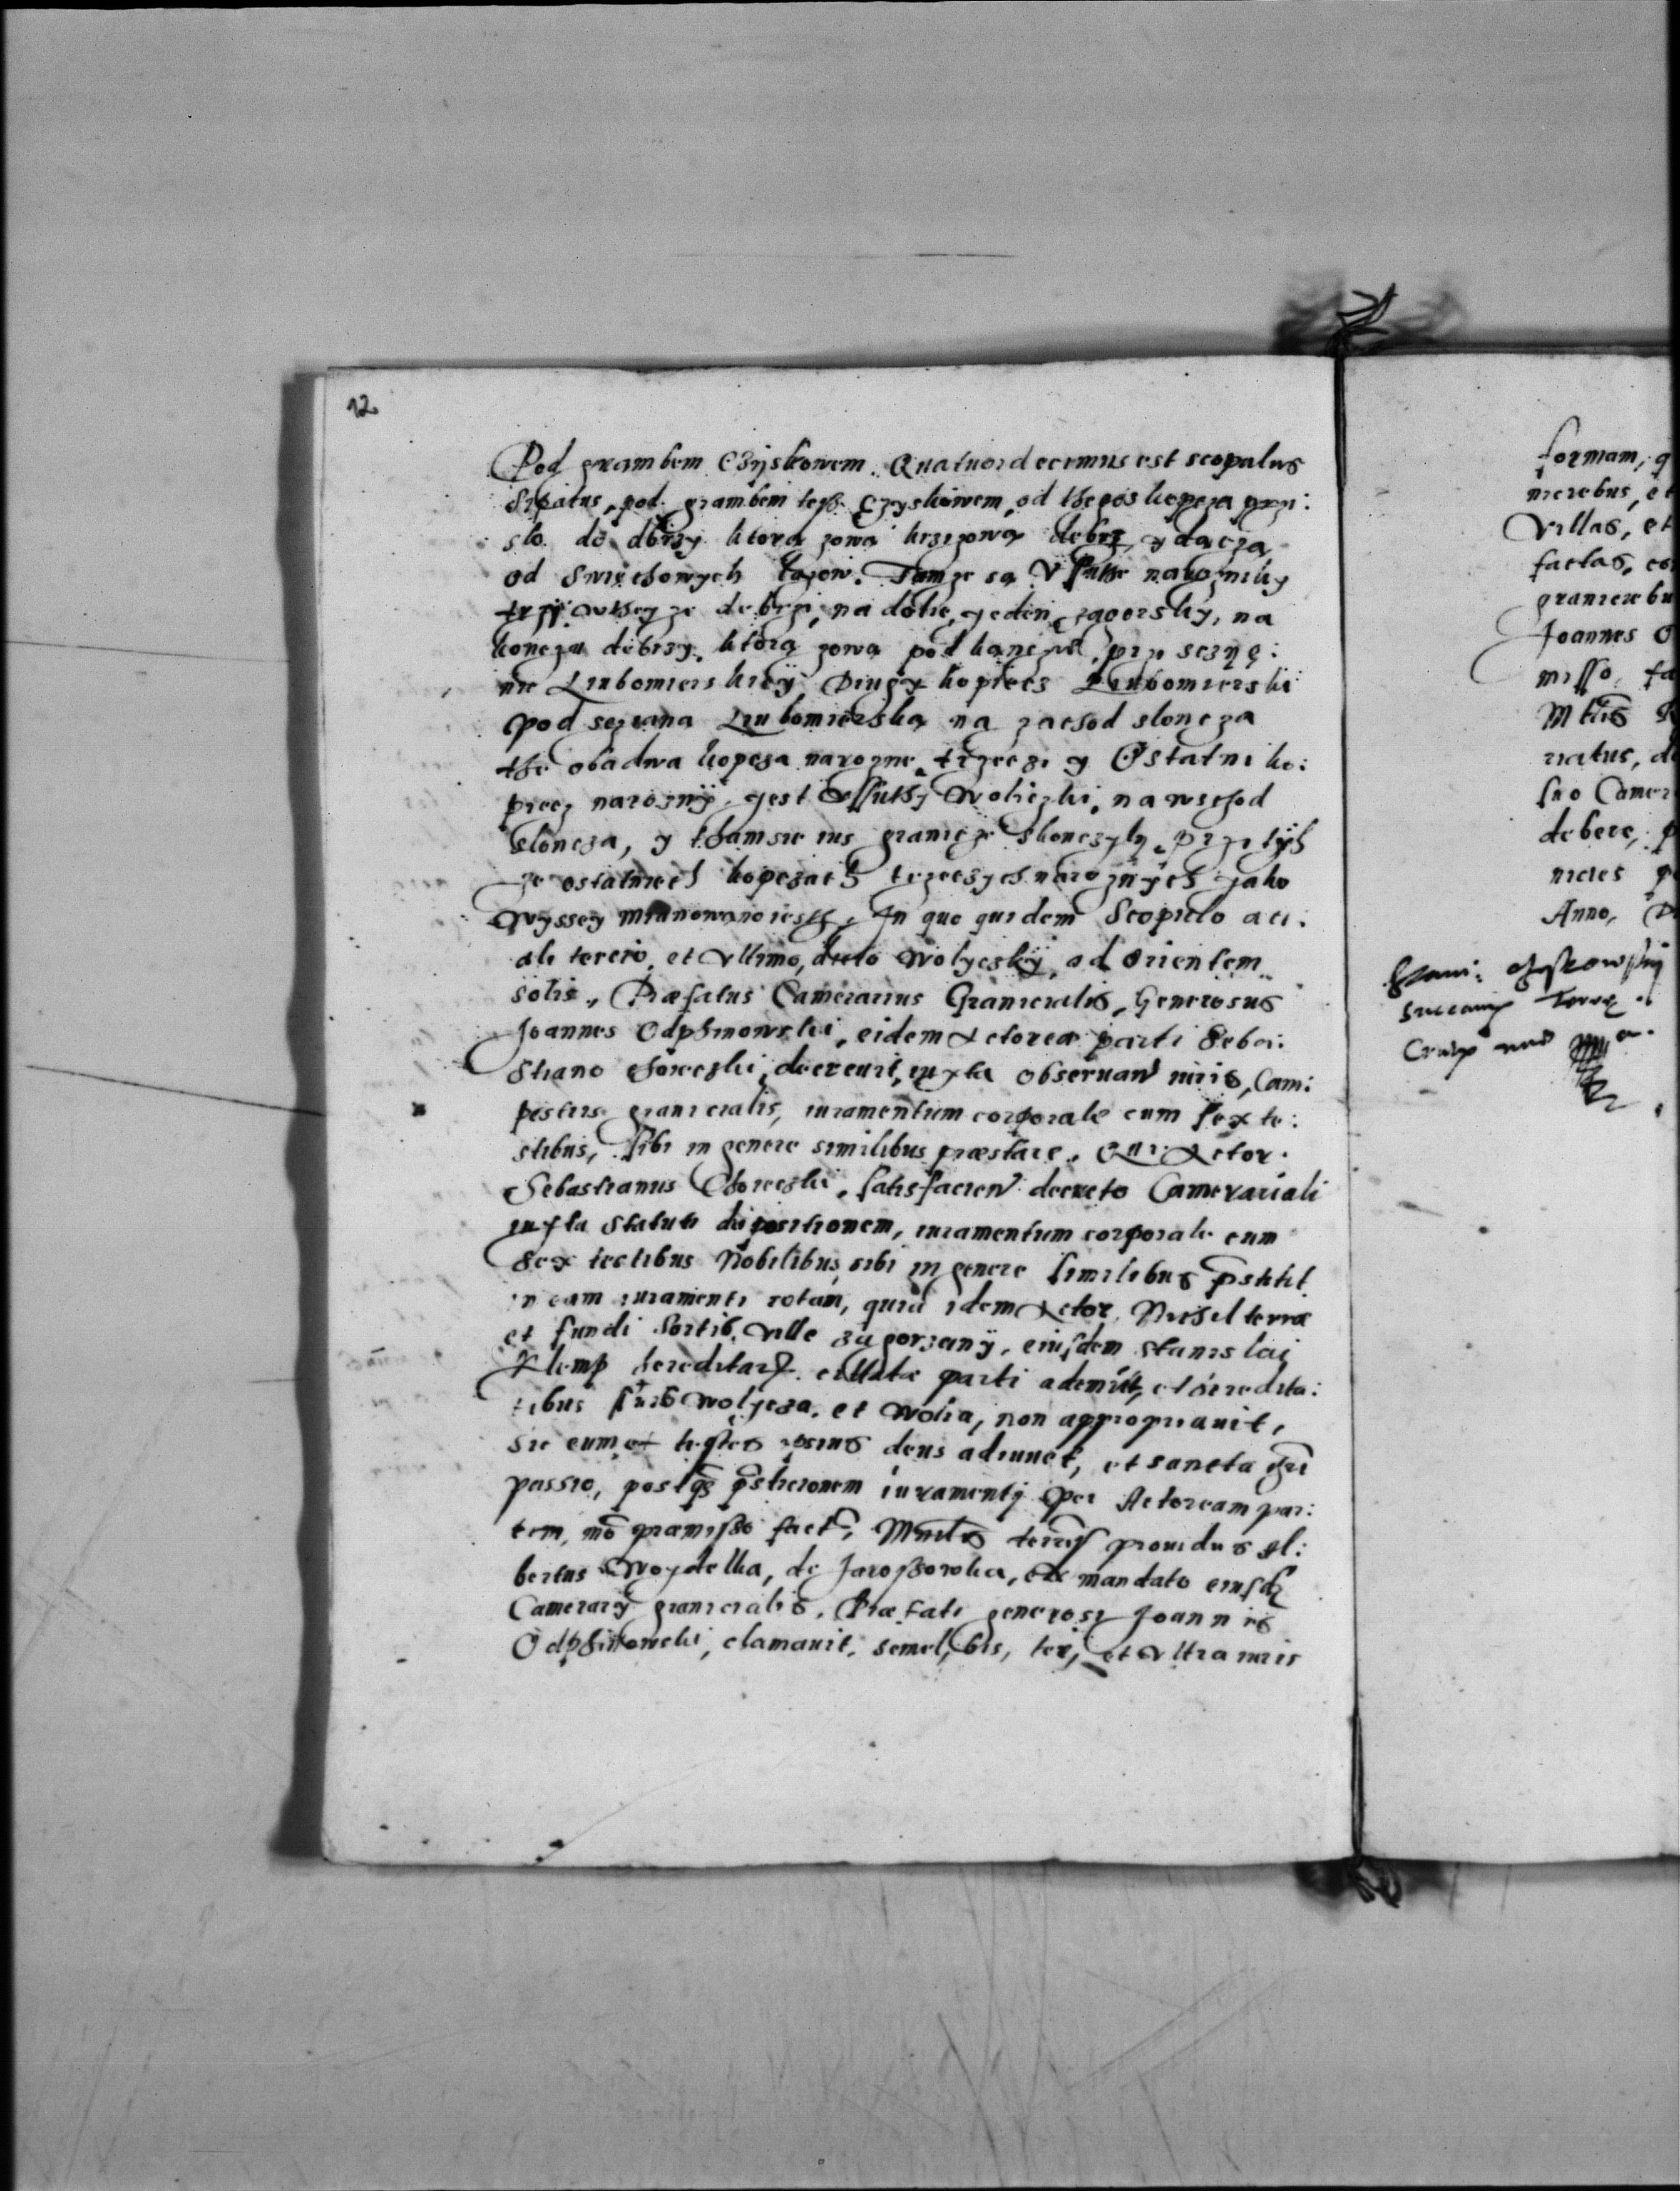 12.
Pod grambem Czyskowem. Quatuordecimus est scopulus
sipatus, pod grambem tesz Czyskowem, od thegos kopcza przi:
slo do dbrzy ktora zowa krzizowa debrz, ydacza
od Swięchowych łazow. Tamze są Vssutke narozniky
trzÿ. wtheyze debrzi, na dolie, yeden zagorsky, na
koncza debrzy, ktorą zowa pod kanczud, przi scznę:
nie Liubomierskieÿ Drugy kopiecz Liubomierski
pod scziana Liubomierska na zachod sloncza
the obadwa kopcza narozne, trzeczi y Ostatni ko:
piecz naroznÿ. yest Vssuthy Woliczki, na wschod
sloncza, y thamsie ius granicze skonczyly, Przi tych
ze ostatniech kopczach trzecsych naroznÿch jako
wyssey mianowano iesth, In quo quidem Scopulo aci:
ali tercio, et Vltimo, dicto Wolyeskÿ, ad Orientem
solis, Præfatus Camerarius Granicialis, Generosus
Joannes Odphinowski, eidem Actoreæ parti Seba:
stiano Chorczski, decreuit, iuxta obseruan iuris, Cam:
pestris granicialis, iuramentum corporale cum sex te:
stibus, sibi in genere similibus præstare, Qui Actor
Sebastianus Chorczski, satisfacien decreto Camerariali
iuxta Statuti dispositionem, iuramentum corporale cum
Sex testibus Nobilibus sibi in genere similibus pstitit
in eam iuramenti rotam, quia idem Actor, Nichil terræ
et fundi Sortis Ville Zagorzanÿ, eiusdem Stanislai
Klemp hereditarÿ citatæ parti ademit, et heredita:
tibus suis Wolycza. et Wolia, non appropriauit,
sic eum et testes ipsius deus adiuuet, et sancta
passio, postqz pstitionem iuramentÿ per Actoream par:
tem, mo præmisso fact, terris prouidus Al:
bertus Woydelka, de Jaroszowka, ex mandato eiusdz
Camerarÿ granicialis, Præfati generosi Joannis
Odphinowski, clamauit, semel, bis, ter, et Vltra iuris
formam, q
nicebus, et
Villas, et
factas, co
graniciebu
Joannes O
misso, fa
riatus, de
suo Camer
debere, p
nicies p
Anno, D